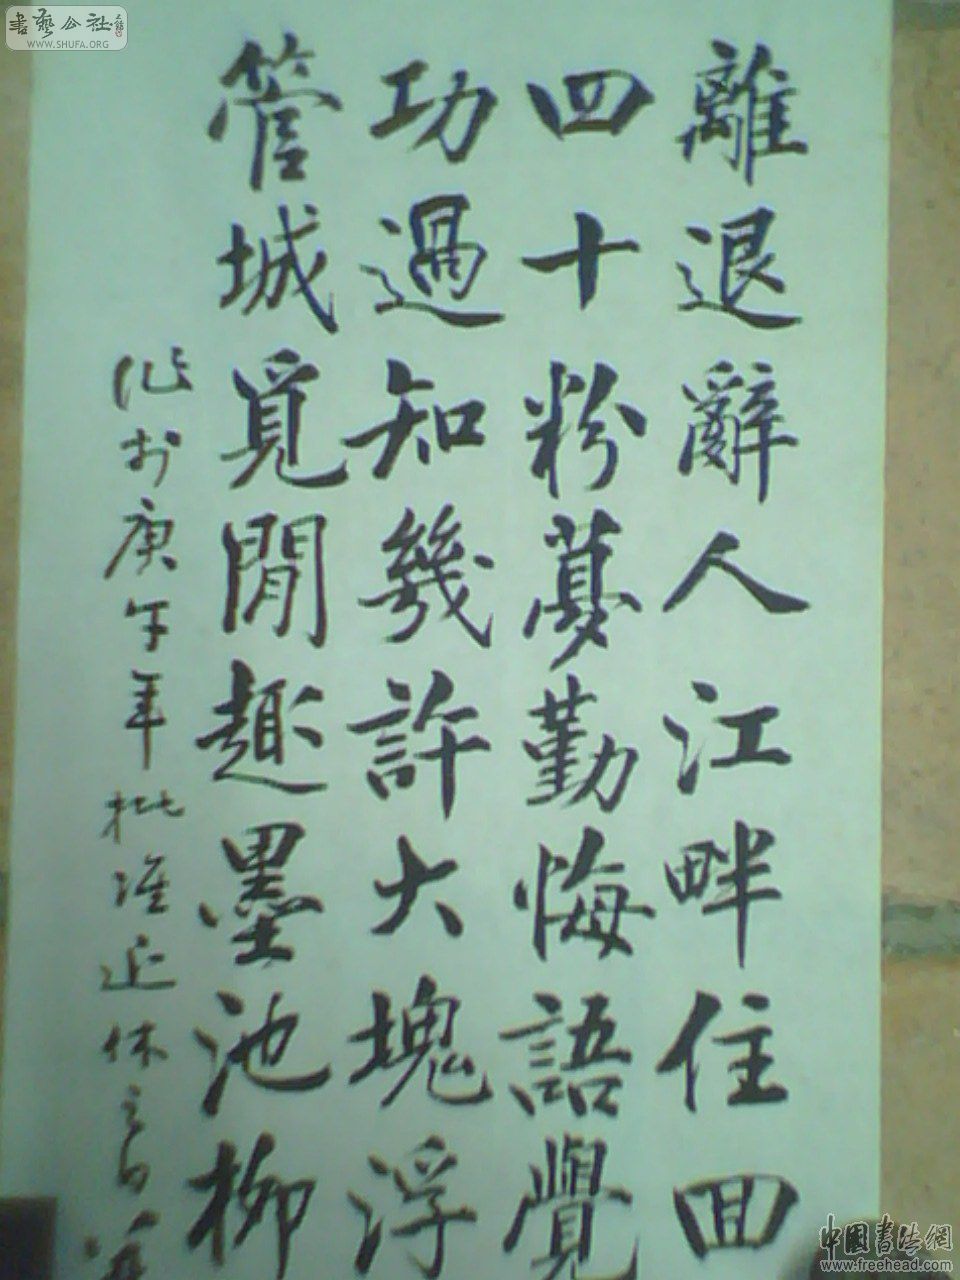 離退辭人江畔住回
四十粉夢勤悔語覺
功過知幾許大塊浮
管城覓閒趣墨池柳
作於庚午年批准退休之日
書藝公社
WWW.SHUFA.ORG
中國書法網
www.freehead.com